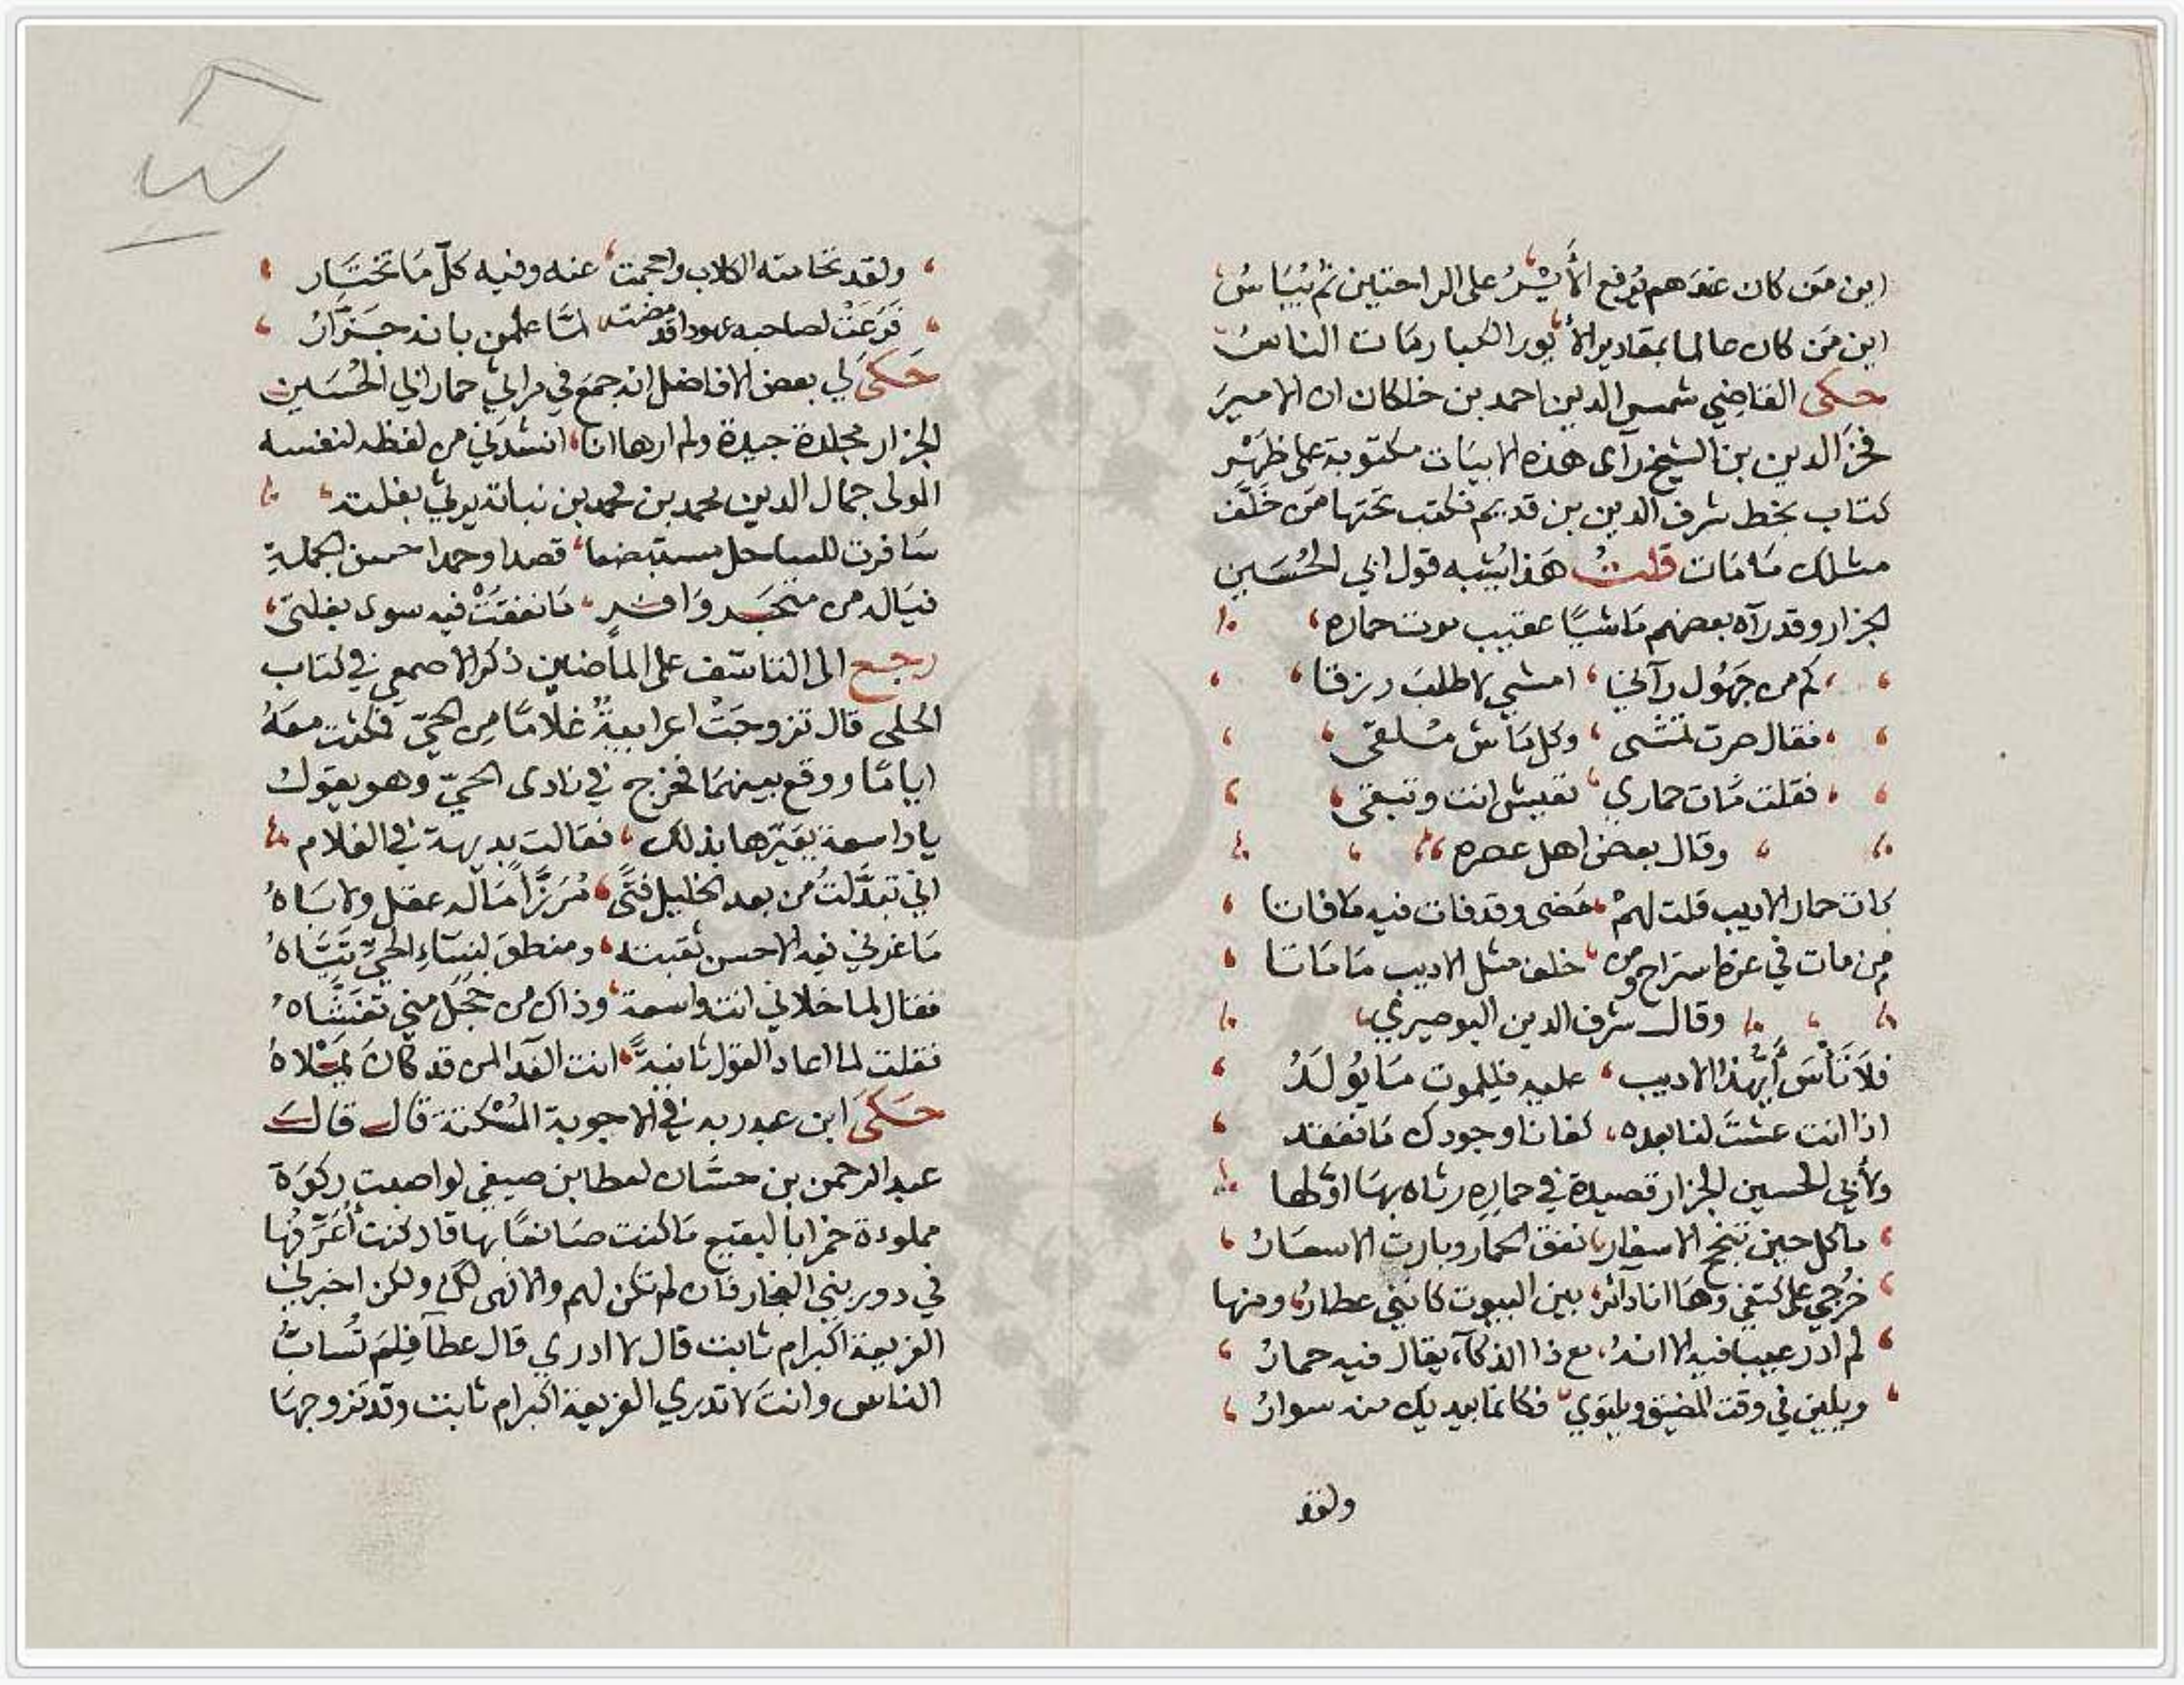 اين من كان عندهم يُرفع الأيْرُ على الراحتين ثم يُبَاسُ
اين من كان عالما بمقادير الأيور الكبار مات الناسُ
حكى القاضي شمس الدين احمد بن خلكان ان الامير
فخر الدين بن الشيخ رآى هذه الابيات مكتوبة على ظهر
كتاب بخط شرف الدين بن قديم فكتب تحتها من خَلَّف
مثلك ما مات قلتُ هَذا يُشبه قول ابي الحُسَين
الجزار وقد رآه بعضهم ماشيًا عقيب موت حماره
كم من جَهُول رآني امشي لاطلبَ رزقا
فقال صرت تمشى وكل ماش مُلقى
فقلت مات حماري تعيش انت وتبقى
وقال بعض اهل عصره
مات حمار الاديب قلت لهمْ مَضى وقد فات فيه ما فاتا
من مات في عزه استراح ومن خلف مثل الاديب مَا مَاتا
وقال شرف الدين البوصيري
فلا تَأسَ أيُّهذا الاديب عليه فللموت مَا يُولَدُ
اذا انت عشتَ لنا بعده كفانا وجودك مَا نفقد
ولأبي الحسين الجزار قصيدة في حماره رثاه بهَا اولها
ما كل حين تنجح الاسفار نفق الحمار وبارت الاسعَارُ
خُرجي على كتفي وهَا انا دائر بين البيوت كانني عطارُ ومنها
لم ادر عيبا فيه الا انهُ مع ذا الذكاء يقال فيه حمارُ
ويلين في وقت المضيق ويلتوي فكانما بيديك منه سوارُ
ولقد
ولقد تحامته الكلاب واحجمت عنه وفيه كلّ مَا تَختَار
فَرَعَتْ لصاحبه عهودا قد مضت لمَّا علمن بانه جَزَّارُ
حَكىَ لي بعض الافاضل انه جمعَ في مراثي حمار ابي الحُسَين
الجزار مجلدة جيدة ولم ارها انا انشدَني من لفظه لنفسه
المولى جمال الدين محمد بن محمد بن نباته يرثي بغلته
سَافرت للساحل مستبضعا قصدا وحمدا حسن الجملةِ
فيَاله من متجَر وَافر مَا نفقَتْ فيه سوى بغلتى
رجع الى التاسّف على الماضين ذكر الاصمعي في كتاب
الحلى قال تزوجَتْ اعرابيةٌ غلامًا من الحيّ فمكثت معَهُ
ايامًا ووقع بينهمَا فخرج في نادى الحيّ وهو يقول
يا واسعة يعَيّرها بذلك فقالت بديهة في الغلام
اني تبدَّلتُ من بعد الخليل فتًى مُرَزَّأ مَاله عقل ولا بَاهُ
مَا غرني فيه الا حسن نقبته ومنطق لنسَاءِ الحيّ تَيَّاهُ
فقال لما خلا بي انت واسعة وذاك من خجَل مني تغَشَّاهُ
فقلت لما اعاد القول ثانيةً انت الفدا لمن قد كانَ يَمْلاهُ
حَكىَ ابن عبد ربه في الاجوبة المُسْكتة قال قالَ
عبد الرحمن بن حسَّان لعطا بن صيفي لو اصبت ركوَة
مملوءة خمرا بالبقيع مَا كنت صَانعًا بها قال كنت أُعَرّفُها
في دور بني النجار فان لم تكن لهم والا فهى لك ولكن اخبرني
الفريعة اكبر ام ثابت قال لا ادري قال عطآ فلِمَ تُسابُّ
الناس وانتَ لا تدري الفريعة اكبر ام ثابت وقد تزوجهَا